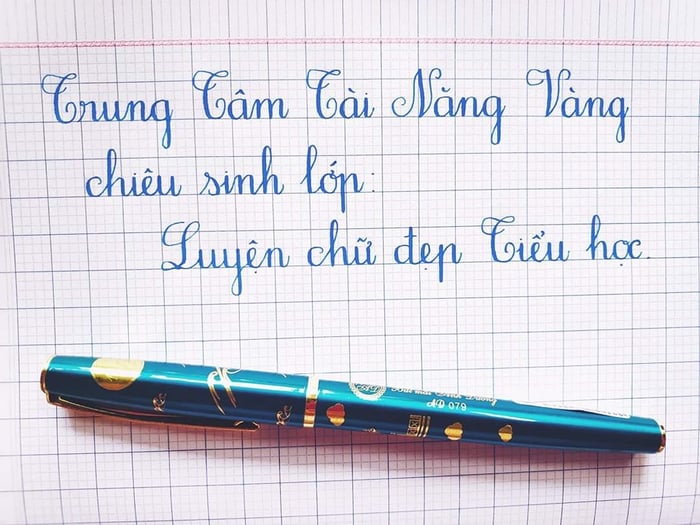 Trung Tâm Tài Năng Vàng
chiêu sinh lớp:
Luyện chữ đẹp Tiểu học.
ND 079